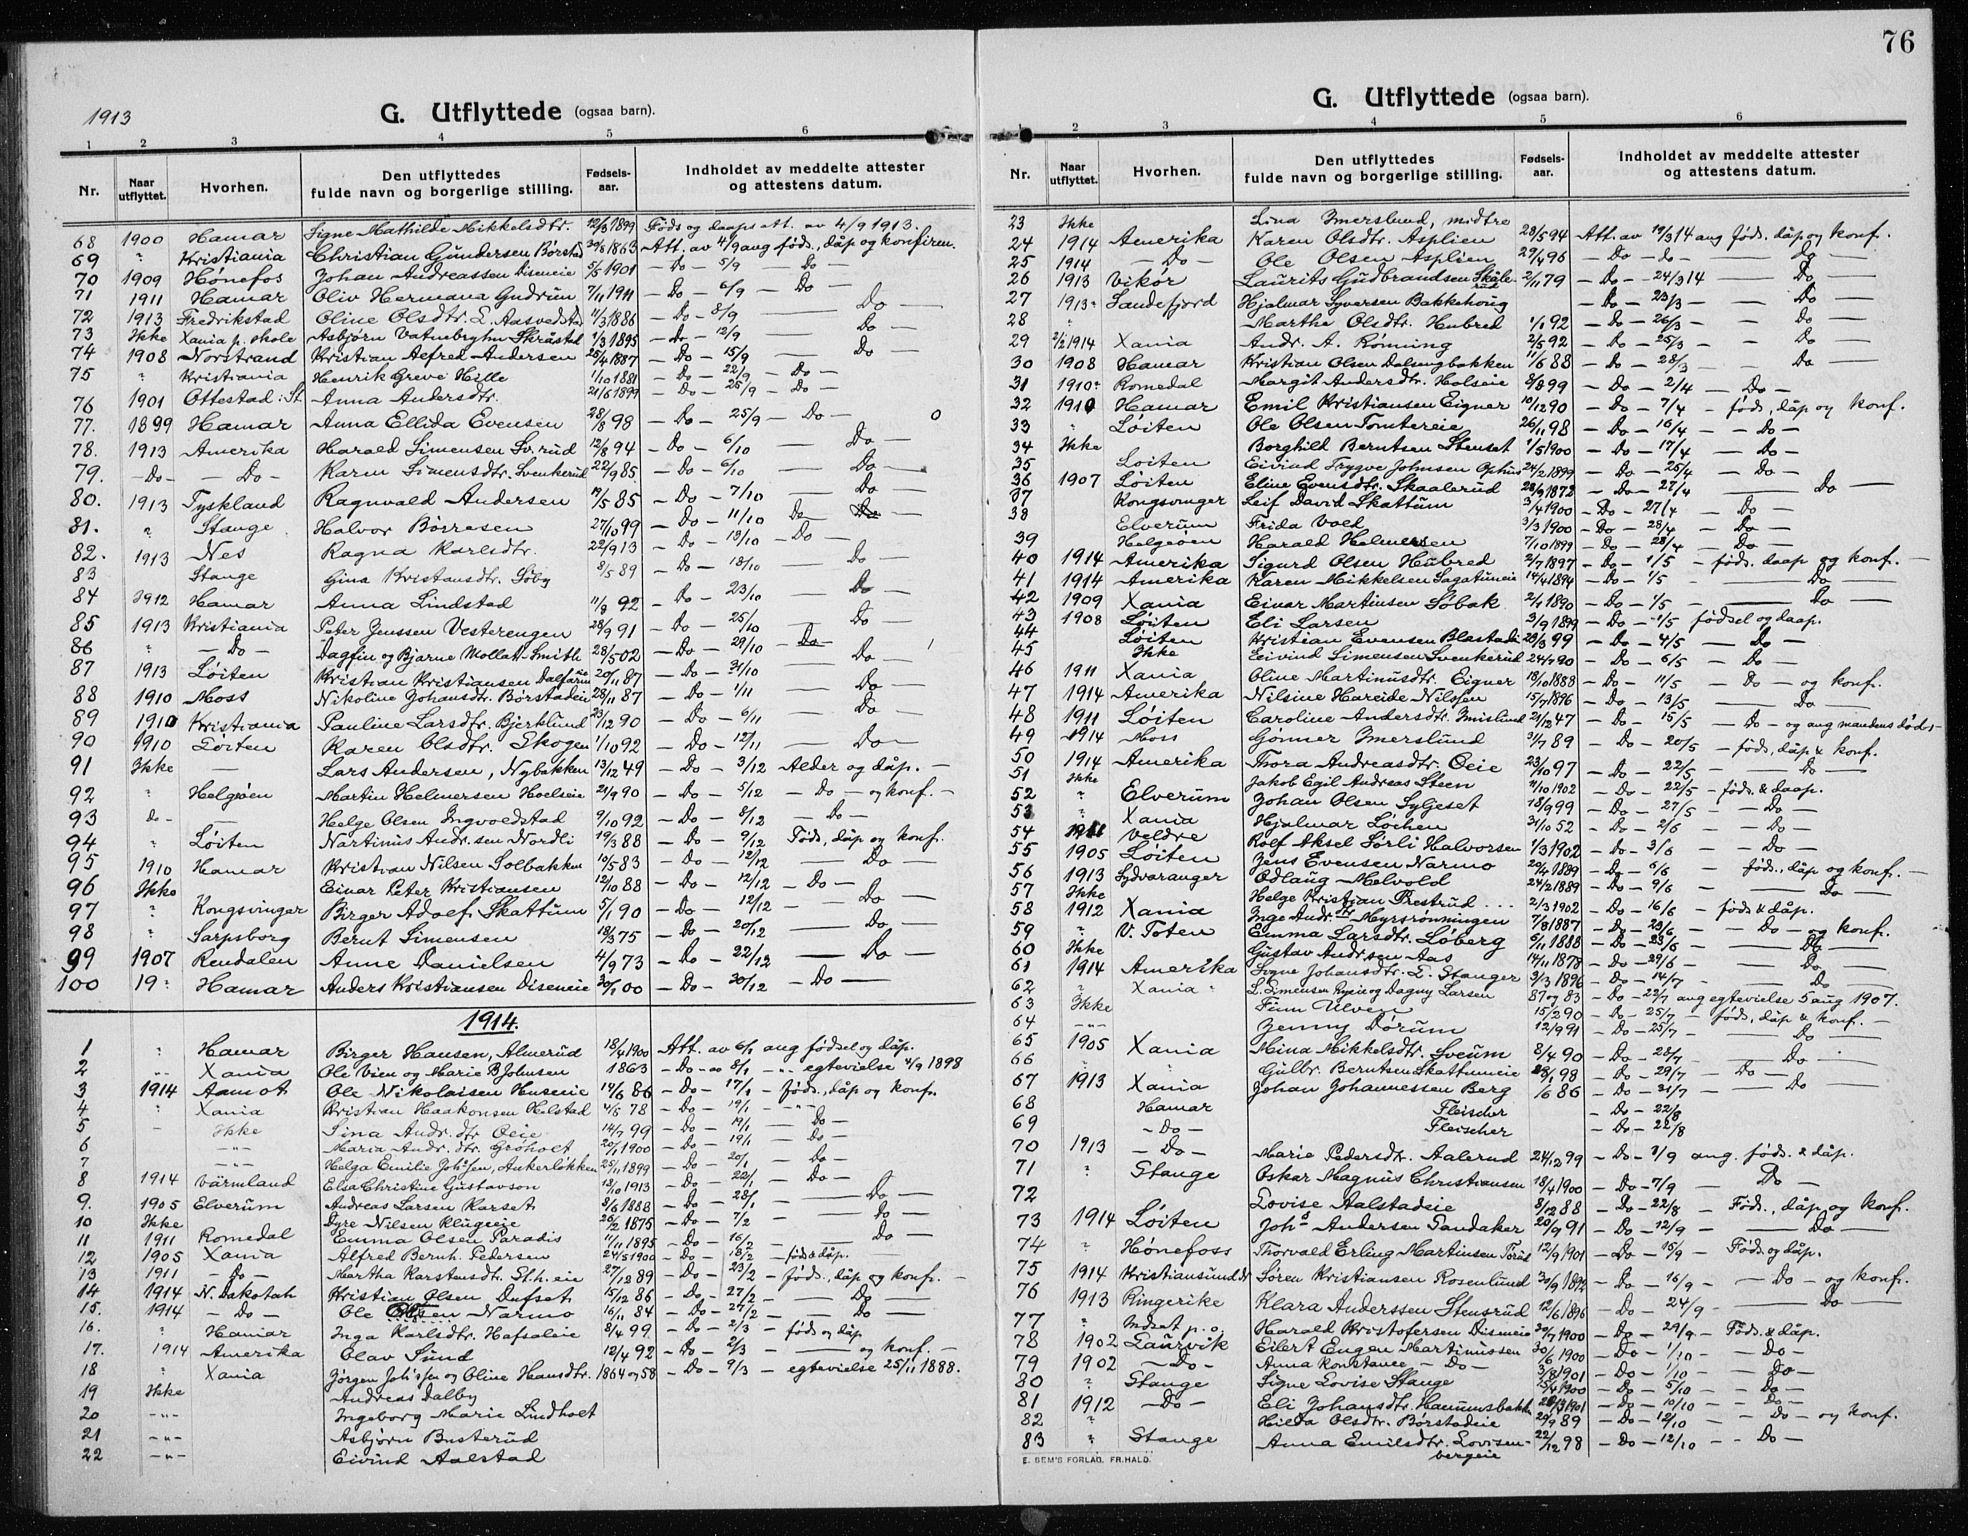 76
1913
G. Utflyttede (ogsaa barn).
1 2 3 4 5 6
Nr. Naar utflyttet. Hvorhen. Den utflyttedes fulde navn og borgerlige stilling. Fødsels- aar. Indholdet av meddelte attester og attestens datum.
68 1900 Hamar Signe Mathilde Mikkelsdtr. 12/3 1899 Føds og daaps att. av 4/9 1913.
69 " Kristiania Christian Gundersen 1863 Att. av 4/9 ang føds., dåp og konfirm.
70 1909 Hønefos Johan Andreassen Diseneie 5/5 1901 - Do - 5/9 - Do -
71 1911 Hamar Oliv Hermana Gudrun 7/11 1911 - Do - 6/9 - Do -
72 1913 Fredrikstad Oline Olsdtr. L. 11/3 1886 - Do - 8/9 - Do -
73 Ikke Xania p. skole Asbjørn 1/3 1895 - do - 12/9 - Do -
74 1908 Norstrand Kristian Alfred Andersen 25/4 1887 - Do - 15/9 - Do -
75 " Kristiania Henrik Greve Hille 1/10 1881 - Do - 22/9 - Do -
76 1901 Ottestad: St. Anna Andersdtr. 21/6 1899 - Do - 25/9 - Do -
77. 1899 Hamar Anna Ellida Evensen 28/8 98 - Do - 25/9 - Do - 0
78. 1913 Amerika Harald Simensen 12/8 94 - Do - 6/10 - Do -
79. - Do - - Do - Karen Simensdtr. Svenkerud 22/9 85. - Do - 6/10 - Do -
80. 1913 Tyskland Ragnvald Andersen 85 - Do - 7/10 - Do -
81. " Stange Halvor Børresen 27/10 99 - Do - 11/10 Do
82. 1913 Nes Ragna Karlsdtr. 22/9 13 - Do - 13/10 - Do -
83 Stange Gina Kristiansdtr. Søby 8/5 89 - Do - 18/10 - Do -
84 1912 Hamar Anna Lindstad 92 - Do - 23/10 - Do -
85 1913 Kristiania Peter Jenssen Vesterengen 28/9 91 - Do - 25/10 - Do
86 " - Do - Dagfin og Bjarne Mollatt-Smith 28/5 02 - Do - 29/10 - Do -
87 1913 Løiten Kristian Kristiansen 20/11 87 - Do - 31/10 Do -
88 1910 Moss Nikoline Johansdtr. Børstadeie 28/11 87 - Do - 1/11 - Do -
89 1910 Kristiania Pauline Larsdtr. Bjerklund 23/12 90 - Do - 6/11 - Do -
90 1910 Løiten Karen Olsdtr. Skogen 1/10 92 - Do - 12/11 - Do -
91 Ikke — Lars Andersen, Nybakken 13/12 49 - Do - 3/12 Alder og dåp. -
92 " Helgøen Martin Helmersen Hoelseie 21/9 90 - Do - 5/12 - Do - og konf. -
93 do - — Helge Olsen Ingvoldstad 9/10 92 - Do - 8/12 - Do -
94 " Løiten Martinus Andr.sen Nordli 19/3 88 - Do - 9/12 Føds, dåp og konf.
95 1910 Hamar Kristian Nilsen Solbakken 10/5 83 - Do - 12/12 - Do -
96 Ikke Einar Peter Kristiansen 12/10 88 - Do - 12/12 - Do -
97 " Kongsvinger Birger Adolf Skattum 5/1 90 - Do - 12/12 - Do -
98 " Sarpsborg Bernt Simensen 18/3 75 - Do - 20/12 - Do -
99 1907 Rendalen Anne Danielsen 4/9 73 - Do - 22/12 - Do -
100 19 " Hamar Anders Kristiansen Diseneie 30/1 00 - Do - 30/12 - Do -
1914.
1 " Hamar Birger Hansen, Almerud 18/4 1900 Att. av 6/1 ang fødsel og dåp.
2 " Xania Ole Vien og Marie B Johnsen 1863 - Do - 8/1 -"- egtevielse 4/9 1898
3 1914 Aamot Ole Nikolaisen Huseeie 14/6 86 - Do - 17/1 - føds., dåp og konf.
4 " Xania Kristian Haakonsen Helstad 78 - Do - 19/1 -"-
5 - Ikke Sina Andr. dtr Oeie 14/7 99 - Do - 19/1 - Do -
6 -"- Maria Andr. dtr. Grøholt 20/1 1900 - Do - 19/1 - Do -
7 -"- Helga Emilie Johsen, Ankerløkken 25/1 1899 - Do - 20/1 - Do -
8 1914 Värmland Elsa Christine Gustavson 12/10 1913 - Do - 22/1 - Do -
9. 1905 Elverum Andreas Larsen Karset 8/6 1888 - Do - 28/1 - Do -
10 Ikke Dyre Nilsen Klugeeie 26/2 1875 - Do - 7/2 - Do -
11 1911 Romedal Emma Olsen Paradis 1895 - Do - 16/2 - Do -
12 1905 Xania Alfred Bernh. Pedersen 24/5 1900 - Do - 18/2 - føds & dåp.
13 1911 - Do - Martha Karstensdtr. St.h. eie 27/12 89 - Do - 23/2 - føds., dåp og konf. -
14 1914 N. Dakotah Kristian Olsen Dufset 15/12 86 - Do - 27/2 - Do -
15. 1914 - Do - Ole Olsen Narmo 16/11 84 - Do - 27/2 - Do -
16. " Hamar Inga Karlsdtr. Hafsaleie 8/4 99 - Do - 2/3 - føds og dåp
17. 1914 Amerika Olav Sund 12/4 92 - Do - 2/3 - og konf. -
18 " Xania Jørgen Johsen og Oline Hansdtr. 1864 og 58 - Do - 9/3 - egtevielse 25/11 1888.
19 Ikke Andreas Dalby
20 -"- Ingeborg Marie Lindholt
21 -"- Asbjørn Busterud
22 -"- Eivind Aalstad
G. Utflyttede (ogsaa barn).
1 2 3 4 5 6
Nr. Naar utflyttet. Hvorhen. Den utflyttedes fulde navn og borgerlige stilling. Fødsels- aar. Indholdet av meddelte attester og attestens datum.
23 Ikke Lina Imerslund, midtre
24 1914 Amerika Karen Olsdtr. Asplien 28/5 94 Att. av 19/3 14 ang føds. dåp og konf.
25 1914 - Do - Ole Olsen Asplien 29/4 96 - Do - Do - Do -
26 1913 Vikør Laurits Gudbrandsen 2/11 79 - Do - 24/3 14 Do
27 1913 " Sandefjord Hjalmar Syversen Bakkehoug - Do - 23/3 - Do -
28 " Marthe Olsdtr. Hubred 1/1 92 - Do - 26/3 - Do -
29 2/2 1914 Xania Andr. A. Rønning 2/5 92 - Do - 25/3 - Do -
30 1908 Hamar Kristian Olsen Dalengbakken 11/6 88 - Do - 28/3 - Do -
31 1910 " Romedal Margit Andersdtr. Holseie 8/8 99 - Do - 2/4 - Do -
32 1910 Hamar Emil Kristiansen Eigner 10/12 90 - Do - 7/4 - føds, dåp og konf.
33 " Løiten Ole Olsen Tomtereie 26/11 98 - Do - 16/4 - Do -
34 Ikke Borghild Berntsen Stenset 1/5 1900 - Do - 17/4 - Do -
35 Løiten Eivind Trygve Johnsen Ophus 24/2 1899 - Do - 25/4 - Do -
36 1907 Løiten Eline Evensdtr. Skaalerud 28/9 1872 - Do - 27/4 - Do -
37 Kongsvinger Leif David Skattum 3/4 1900 - Do - 27/4 - Do -
38 Elverum Frida Vold 3/3 1900 - Do - 28/4 - Do -
39 Helgøen Harald Helmersen 7/10 1899 - Do - 28/4 - Do -
40 1914 Amerika Sigurd Olsen Hubred 2/7 1897 - Do - 1/5 - føds. daap og konf. -
41 1914 Amerika Karen Mikkelsen Sagatuneie 14/4 1894 - Do - 1/5 - Do -
42 1909 Xania Einar Martinsen Sobak 2/1 1890 - Do - 1/5 - Do -
43 1908 Løiten Eli Larsen 3/9 1899 - Do - 1/5 fødsel og daap.
44 Løiten Kristian Evensen 23/3 99 - Do - 4/5 - Do -
45 Ikke Eivind Simensen Svenkerud 24/7 90 - Do - 6/5 - Do -
46 1911 Xania Oline Martinusdtr. Eigner 18/10 1888 - Do - 11/5 - Do - og konf.
47 1914 Amerika Nilsine Hareide Nilsen 15/7 1896 - Do - 13/5 - Do -
48 1911 Løiten Caroline Andersdtr. Imislund 21/12 47 - Do - 15/5 - Do - og ang mandens døds-
49 1914 Moss Gønner Imerslund 3/7 89 - Do - 20/5 - føds, dåp & konf.
50 1914 Amerika Thora Andreasdtr. Oeie 23/10 97 - Do - 22/5 - Do -
51 Ikke Jakob Egil Andreas Steen 11/10 1902 - Do - 22/5 - føds. & daap.
52 " Elverum Johan Olsen Sylgeset 18/9 99 - Do - 27/5 - Do -
53 " Xania Hjalmar Løchen 31/10 52 - Do - 2/6 - Do -
54 1911 Veldre Rolf Aksel Sørli Halvorsen 1/3 1902 - Do - 3/6 - Do -
55 1905 Løiten Jens Evensen Narmo 20/4 1889 - Do - 6/6 - føds., dåp og konf. -
56 1913 Sydvaranger Odlaug Melvold 24/2 1889 - Do - 9/6 - Do
57 Ikke Helge Kristian Prestrud ... 2/3 1902 - Do - 16/6 - føds & dåp.
58 1912 Xania Inge Andr. dtr Myrsrønningen 7/8 1887 - Do - 23/6 - Do - og konf.
59 " V. Toten Emma Larsdtr. Løberg 6/11 1888 - Do - 23/6 - Do
60 Ikke Gustav Andr.sen Aas 14/11 1878 - Do - 29/6 - Do -
61 1914 Amerika Signe Johansdtr. L. Stanger 3/3 1896 - Do - 14/7 - Do
62 " Xania " L. Simensen og Dagny Larsen 87 og 83 - Do - 22/7 ang egtevielse 5 aug 1907.
63 Ikke Finn Ulven 15/2 90 - Do - 25/7 - føds, dåp & konf. -
64 -"- Jenny Dørum 12/9 91 - Do - 25/7 - Do -
65 1905 Xania Mina Mikkelsdtr. Sveum 8/4 90 - Do - 28/7 - Do -
66 " Gulbr. Berntsen Skattumeie 28/1 98 - Do - 29/7 - Do -
67 1913 Xania Johan Johannessen Berg 1/6 86 - Do - 31/7 - Do
68 Hamar Fleischer - Do - 22/8
69 - Do - Fleischer - Do - 22/8
70 1913 - Do - Marie Pedersdtr. Aalerud 24/12 99 - Do - 2/9 ang. føds. & dåp.
71 " Stange Oskar Magnus Christiansen 18/4 1900 - Do - 7/9 - Do -
72 Lovise Aalstadeie 8/12 88 - Do - 22/8 - Føds., dåp og konf.
73 1914 Løiten Johs Andersen Sandaker 20/9 91 - Do - 12/9 - Do -
74 " Hønefoss Thorvald Erling Martinsen 12/9 1901 - Do - 15/9 - Føds. og dåp.
75 1914 Kristiansund Søren Kristiansen Rosenlund 30/9 1892 - Do - 16/9 - Do - og konf.
76 1913 Ringerike Klara Anderssen Stensrud 12/6 1896 - Do - 24/9 - Do -
77 " Mdset p.o. Harald Kristofersen Diseneie 30/7 1900 - Do - 29/9 - Føds. & dåp.
78 1902 Laurvik Eilert Eugen Martinussen 30/6 1900 - Do - 1/10 - Do -
79 1902 - Do - Anna Konstance - Do - 3/8 1901 - Do - 1/10 - Do -
80 " Stange Signe Lovise Stange 15/4 1900 - Do - 5/10 - Do -
81 1912 - Do - Eli Johansdtr. 1901 - Do - 10/10 - Do -
82 " Hilda Olsdtr. Børstadeie 29/9 89 - Do - 12/10 - Do - og konf.
83 " Stange Anna Emilsdtr. Lovisen- 22/12 98 - Do - 12/10 - Do -
bergeie
E. SEM'S FORLAG, FR.HALD.